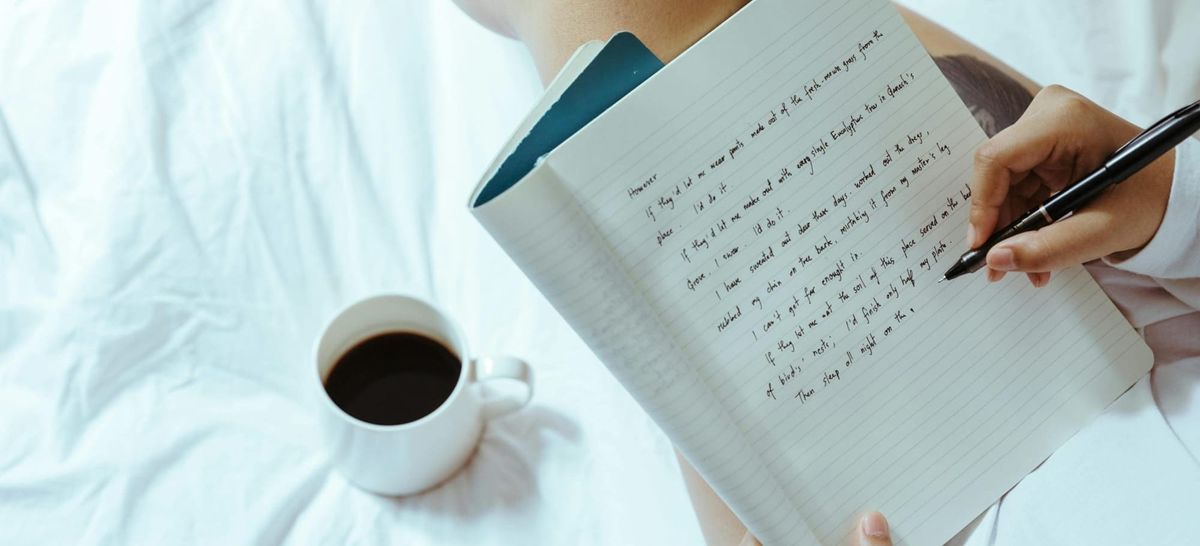 However
If they'd let me wear pants made out of the fresh-mown grass from the
place. I'd do it.
If they'd let me make out with every single Eucalyptus tree in Ganesh's
Grove. I swear. I'd do it.
I have sweated out dew these days. worked out the dregs,
rubbed my chin on tree bark, mistaking it from my master's leg
I can't get far enough in.
If they let me eat the soil of this place served on the bed
of bird's nests, I'd finish only half my plate.
Then sleep all night on the